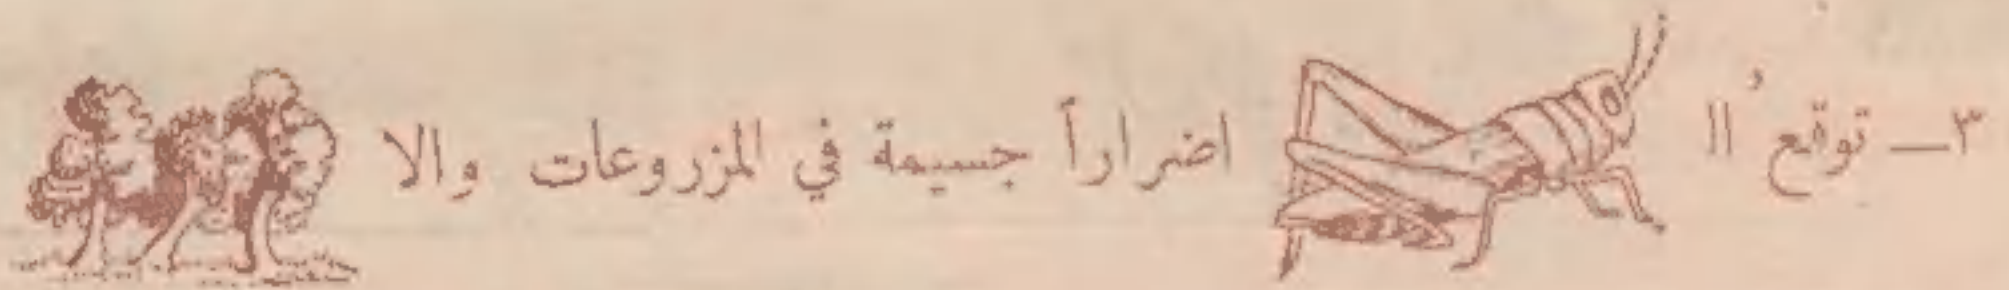 ٣ــ توقعُ ال اضراراً جسيمة في المزروعات والا